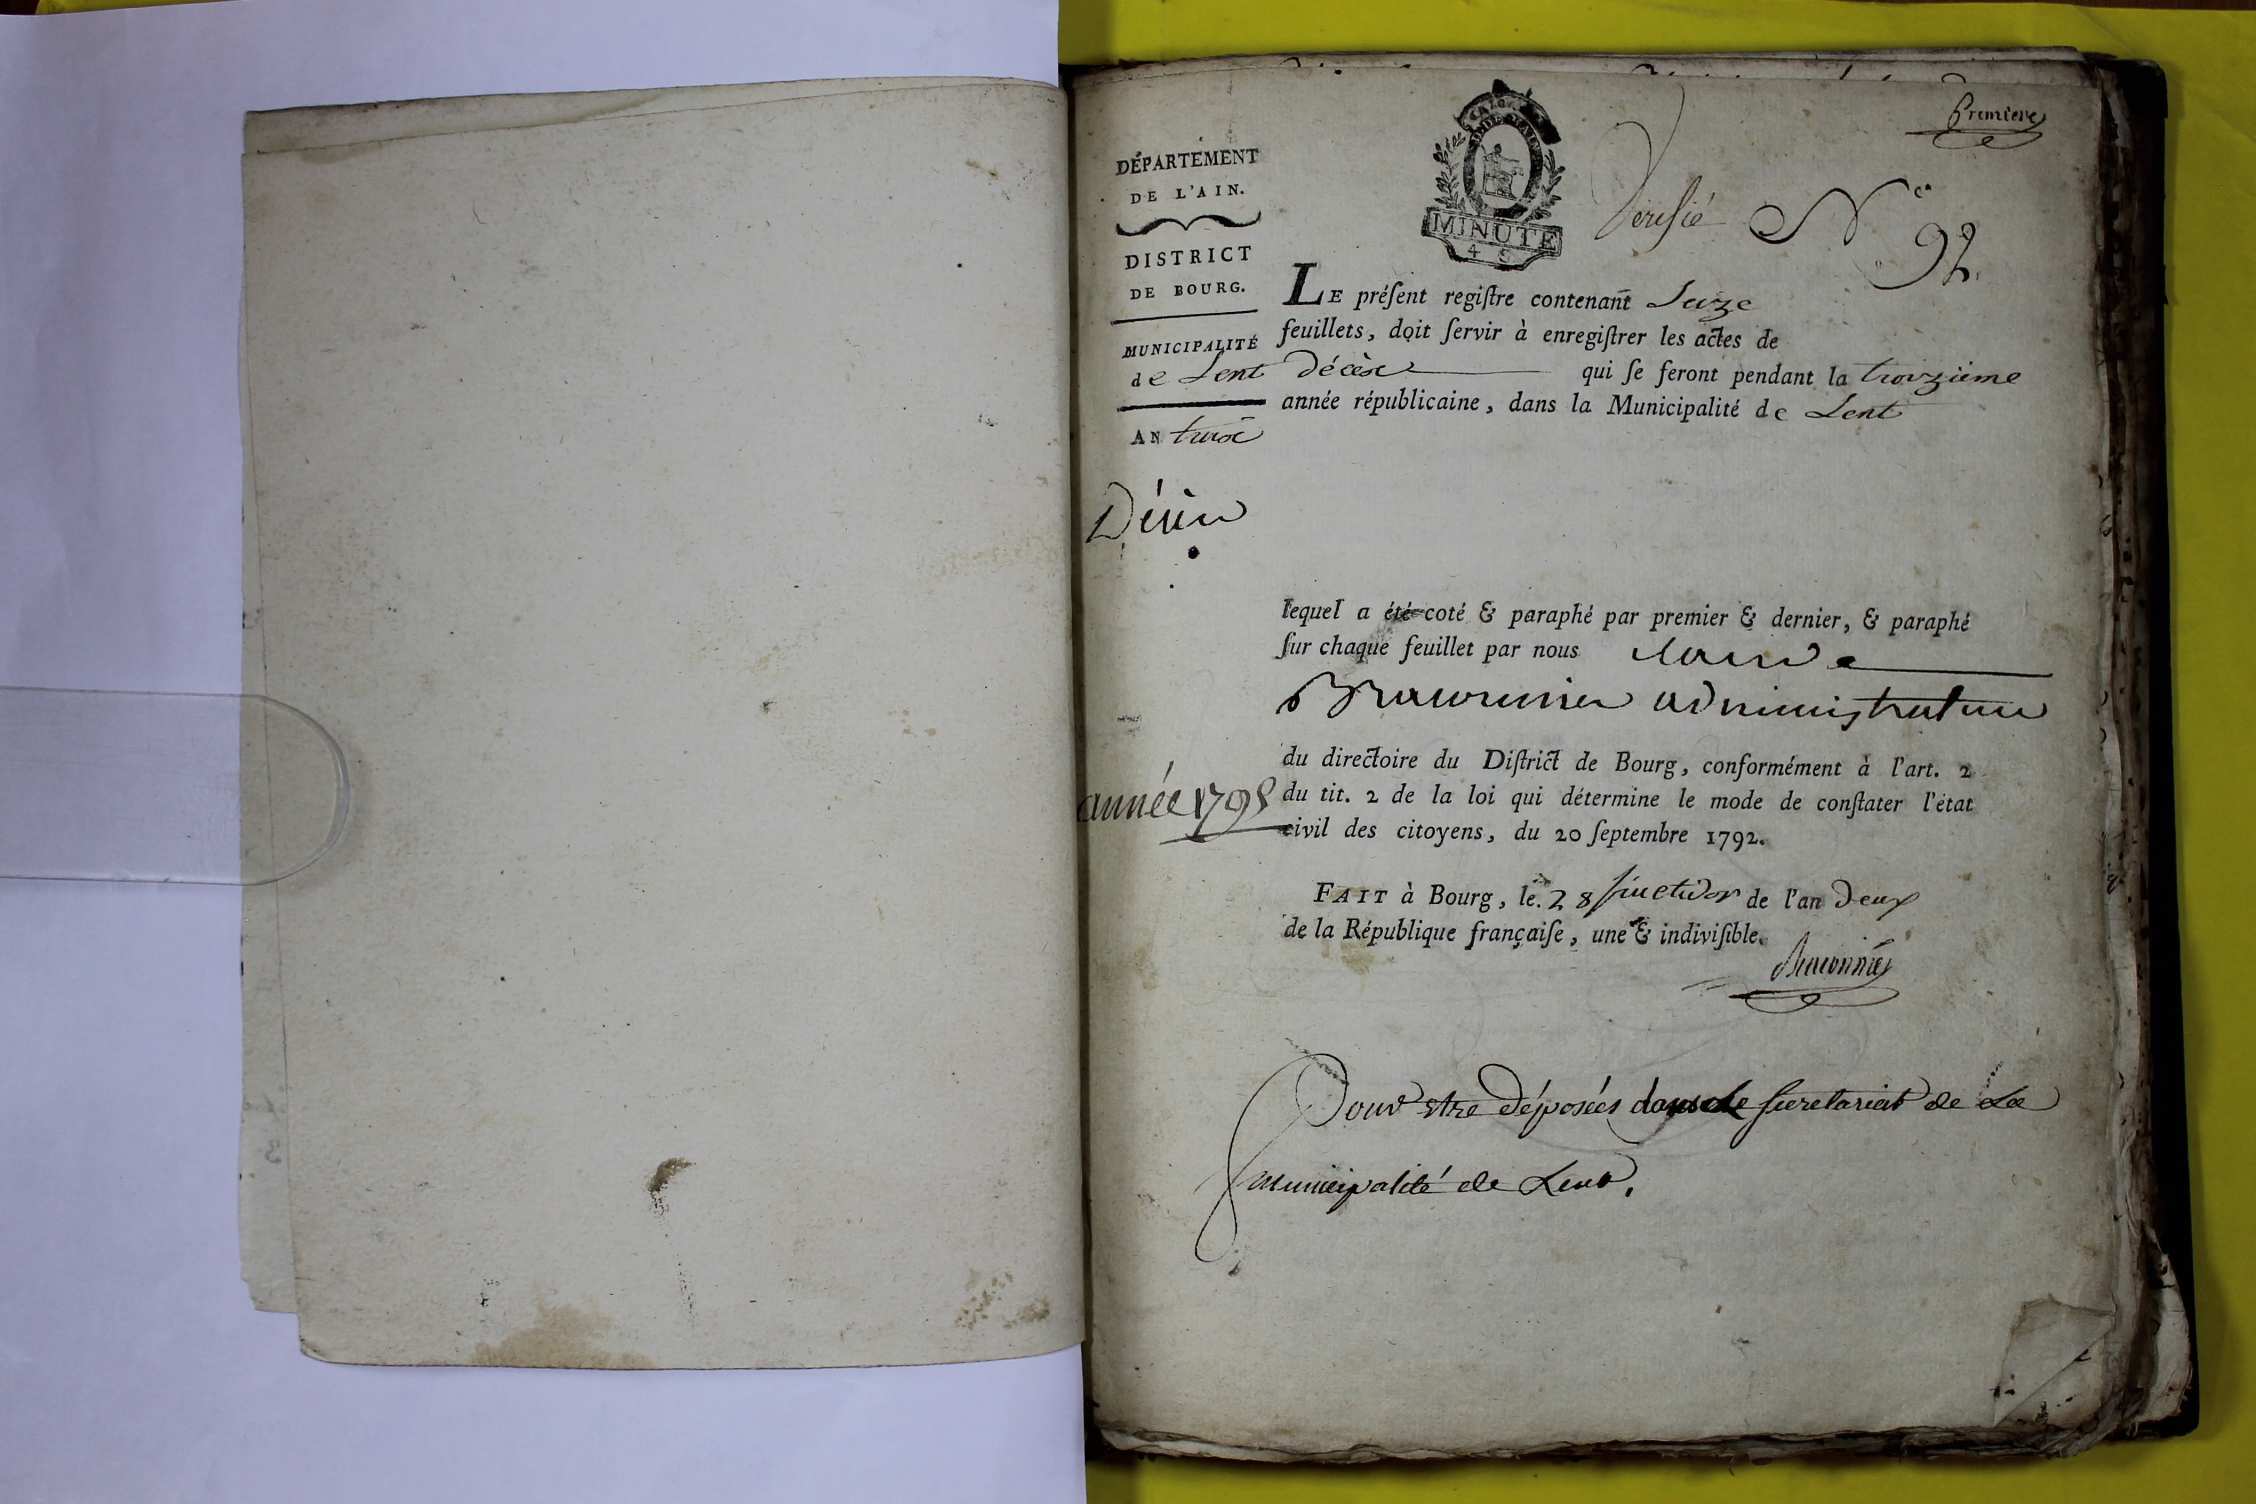 Premiere
DÉPARTEMENT
DE L'AIN.
DISTRICT
DE BOURG.
MUNICIPALITÉ
de Lent
AN troix
Décès
année 1795
MINUTE
4 S
Verifié N.e 92.
LE préſent regiſtre contenant Seize
feuillets, doit ſervir à enregiſtrer les actes de
décèx qui ſe feront pendant la troizieme
année républicaine, dans la Municipalité de Lent
lequel a été coté & paraphé par premier & dernier, & paraphé
ſur chaque feuillet par nous Claude
administrateur
du directoire du Diſtrict de Bourg, conformément à l'art. 2
du tit. 2 de la loi qui détermine le mode de conſtater l'état
civil des citoyens, du 20 ſeptembre 1792.
FAIT à Bourg, le 28 fructidor de l'an deux
de la République françaiſe, une & indiviſible.
Pour etre déposées dans le secretariat de La
municipalité de Lent.